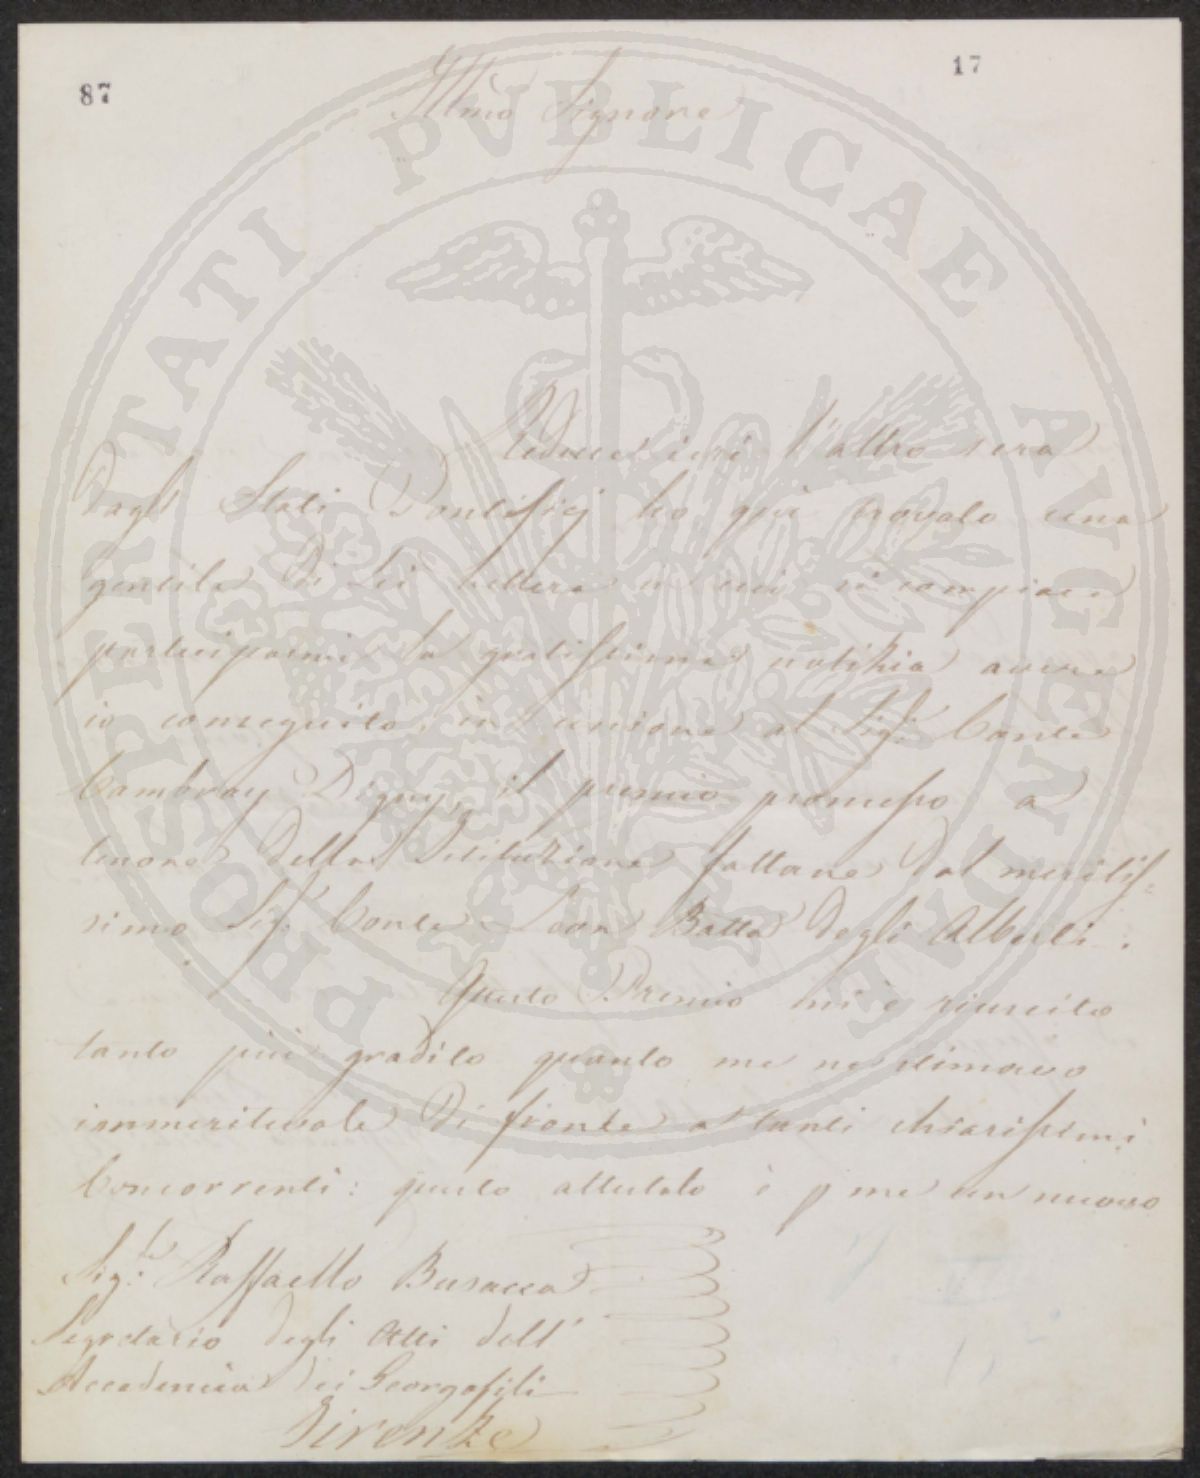 87
17
Illmo Signore
Reduce ieri l'altro sera
dagl Stati Pontificj ho quì trovato una
gentile di Lei lettera in cui si compiace
parteciparmi la gratissima notizia avere
io conseguito, in unione al Sigr. Conte
Cambray Digny, il premio promesso a
tenore della Istituzione fattane dal meritis-
simo Sigr. Conte Leon Batta degli Alberti.
Questo Premio mi è riuscito
tanto più gradito quanto me ne stimavo
immeritevole di fronte a tanti chiarissimi
Concorrenti: questo attestato è p me un nuovo
Sigr. Raffaello Busacca
Segretario degli Atti dell'
Accademia dei Georgofili
Firenze
PROSPERITATI PVBLICAE AVGENDAE